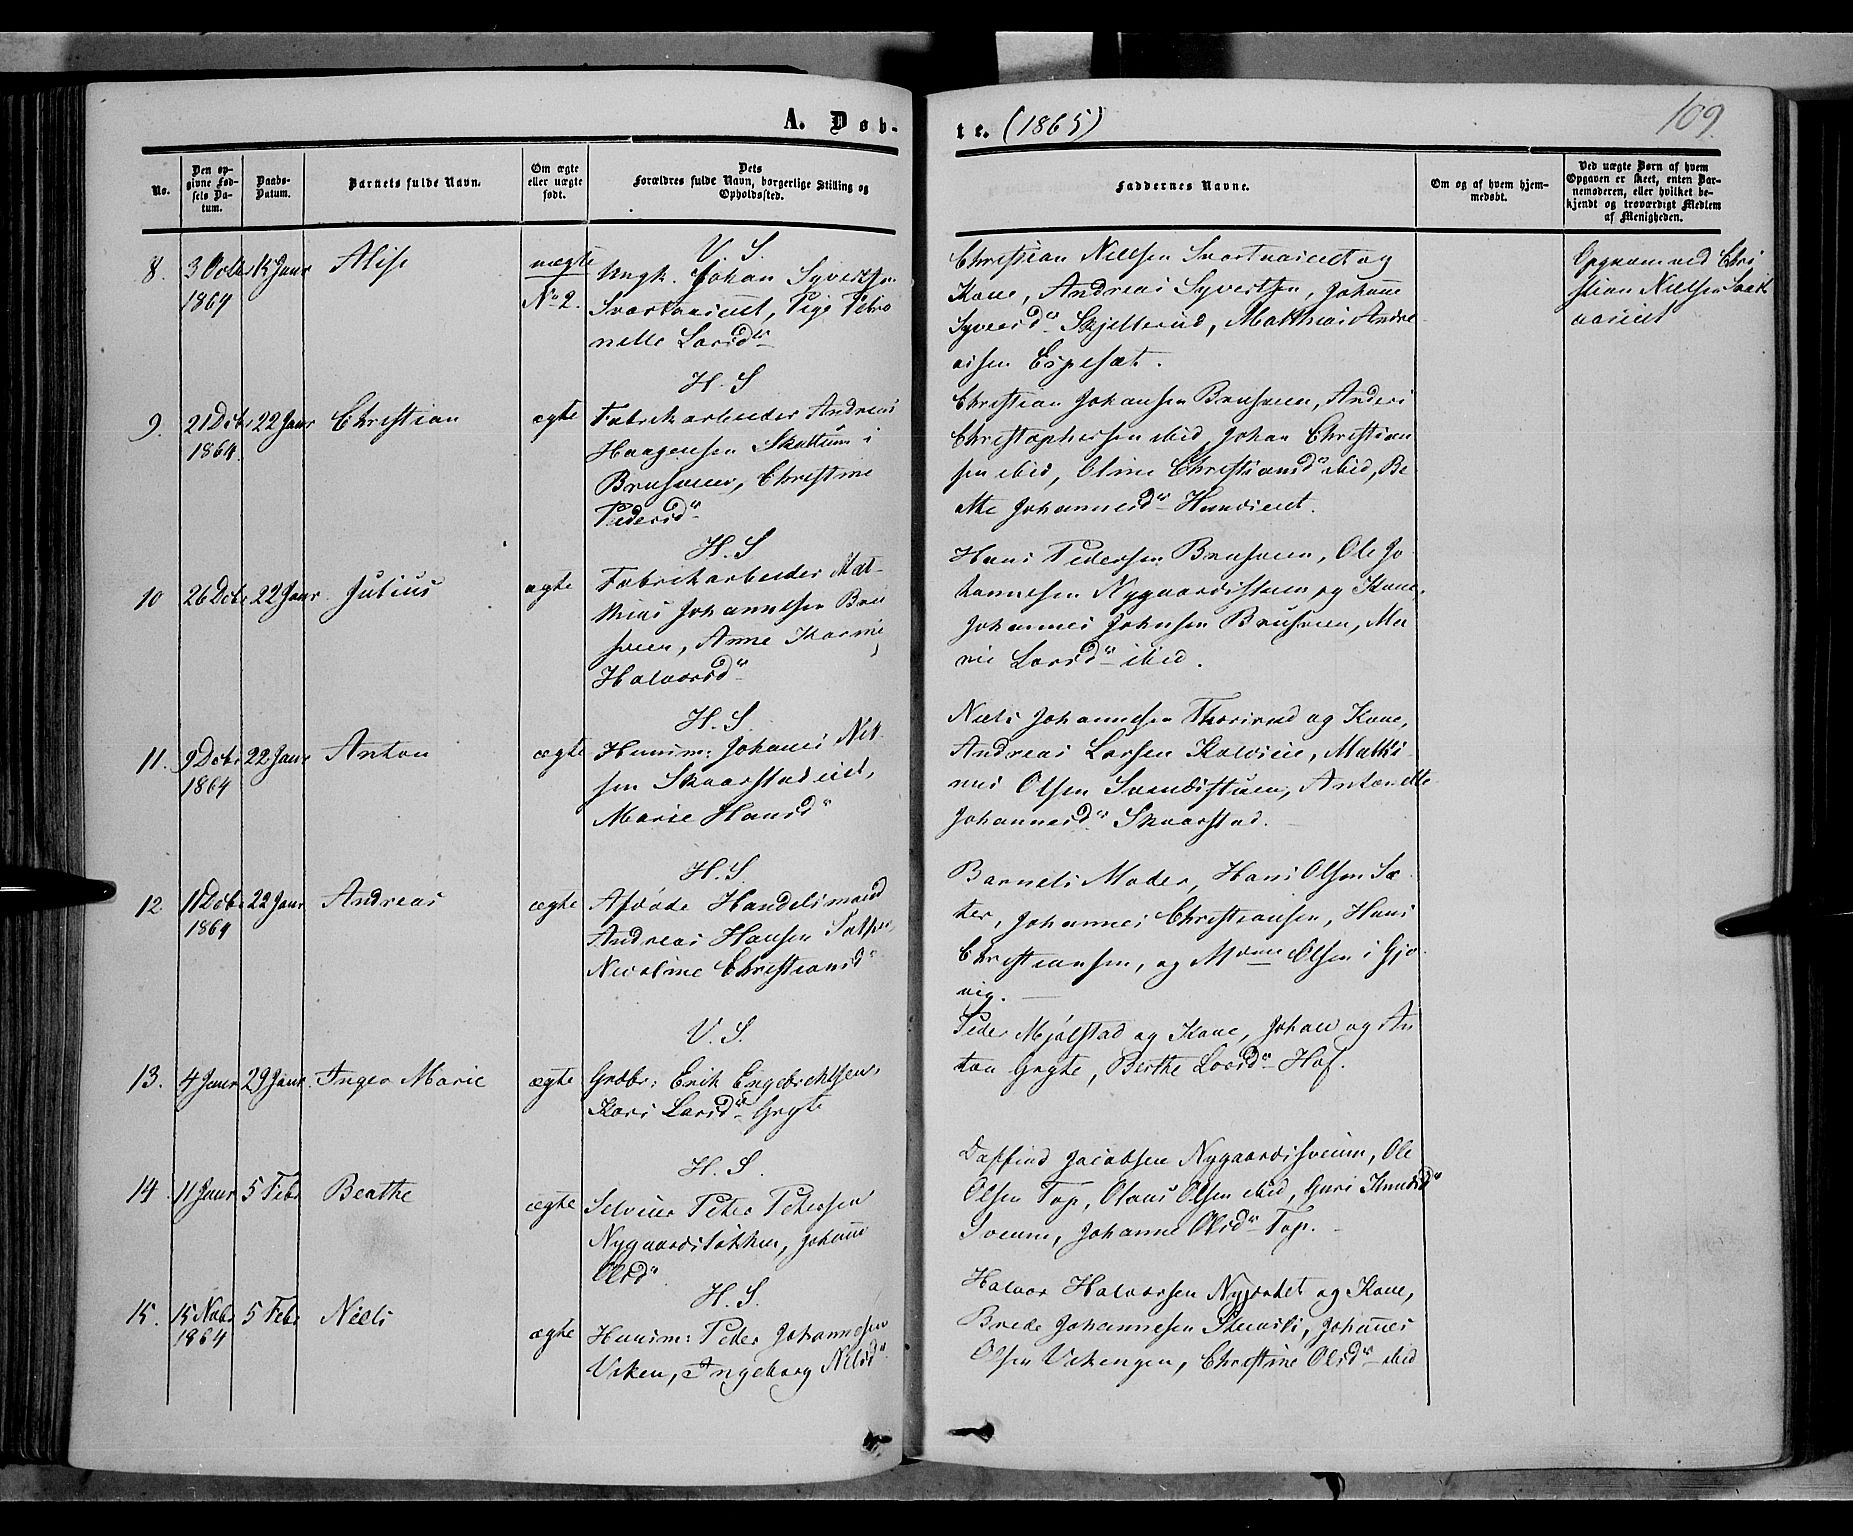 A. Døb-
te. (1865)
109.
No.
Den op-
givne Fød-
sels Da-
tum.
Daabs-
Datum.
Barnets fulde Navn.
Om ægte
eller uægte
født.
Dets
Forældres fulde Navn, borgerlige Stilling og
Opholdssted.
Faddernes Navne.
Om og af hvem hjem-
medøbt.
Ved uægte Børn af hvem
Opgaven er skeet, enten Bar-
nemoderen, eller hvilket be-
kjendt og troværdigt Medlem
af Menigheden.
8. 3 Octbr 15 Janr Alise uægte
1864 No 2.
V. S.
Ungk. Johan Syvertsen
Svartvaseiet, Pige Petro
nelle Larsdr
Christian Nielsen Svartvaseiet og
Kone, Andreas Syvertsen, Johanne
Syversdr Skjelterud, Matthias Andre
asen Espesæt.
Christian Nielsen
9. 21 Decbr 22 Janr Christian ægte
1864.
H. S
Fabrikarbeider Andreas
Haagensen Skattum i
Brusveen, Christine
Pedersdr
Christian Johansen Brusveen, Anders
Christophersen ibid, Johan Christian
sen ibid, Oline Christiansdr ibid, Be
athe Johannesdr Hundseiet.
10 26 Decbr 22 Janr Julius ægte
H. S
Fabrikarbeider Mat-
thias Johannesen Bru
sveen, Anne Karine
Halvorsd
Hans Pedersen Brusveen, Ole Jo
hannesen Nygaardsstuen og Kone,
Johannes Johnsen Brusveen, Ma
rie Larsdr ibid.
11. 9 Decbr 22 Janr Anton ægte
1864
H. S.
Huusm: Johanes Niel
sen Skaarstadeiet,
Marie Hansdr
Niels Johannesen Thorsrud og Kone,
Andreas Larsen Kalvseie, Mathi
nus Olsen Svendsstuen, Antonette
Johannesdr Skaarstad.
12 11 Decbr 22 Janr Andreas ægte
1864
H. S.
Afdøde Handelsmand
Andreas Hansen Sæther,
Nicoline Christiansdr
Barnets Moder, Hans Olsen Sæ
ter, Johannes Christiansen, Hans
Christiansen, og Madme Olsen i Gjø
vig.
13. 4 Janr 29 Janr Inger Marie ægte
V. S.
Grdbr: Erik Engebrechtsen,
Kari Larsdr Gryte
Peder Mjølstad og Kone, Johan og An
ton Gryte, Berthe Larsdr Hof.
14 11 Janr 5 Febr Beathe ægte
H. S.
Selveier Peter Petersen
Nygaardsløkken, Johanne
Olsd
Dagfind Jacobsen Nygaardssveum, Ole
Olsen Top, Olaus Olsen ibid, Guri Knudsdr
Sveum, Johanne Olsdr Top.
15. 15 Novbr 5 Febr Niels ægte
1864
H. S.
Huusm: Peder Johannesen
Viken, Ingeborg Nilsdr
Halvor Halvorsen Nyjordet og Kone,
Brede Johannesen Steensli, Johannes
Olsen Vikengen, Christine Olsdr ibid